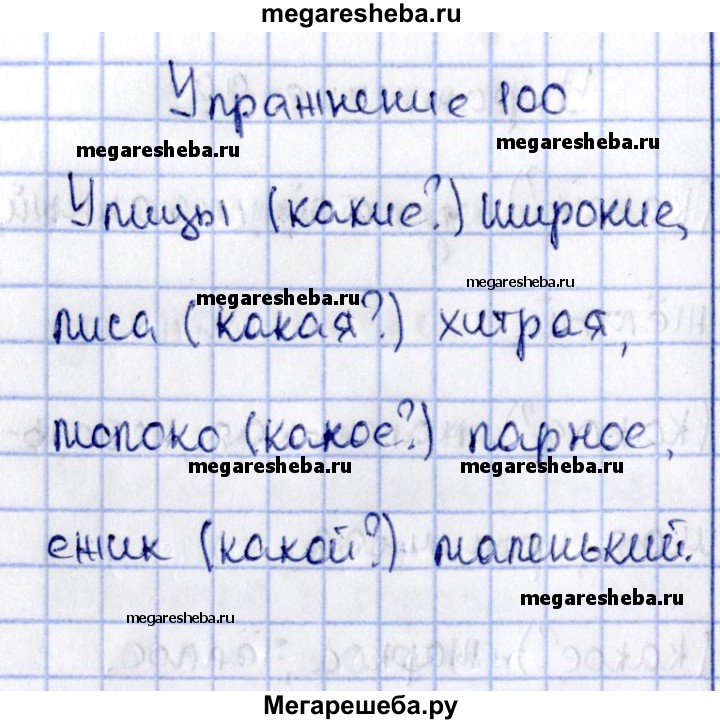 megaresheba.ru
Упражнение 100
megaresheba.ru
Улицы (какие?) широкие,
megaresheba.ru
megaresheba.ru
лиса (какая?) хитрая,
молоко (какое?) парное,
megaresheba.ru
megaresheba.ru
ежик (какой?) маленький.
megaresheba.ru
megaresheba.ru
Мегарешеба.ру